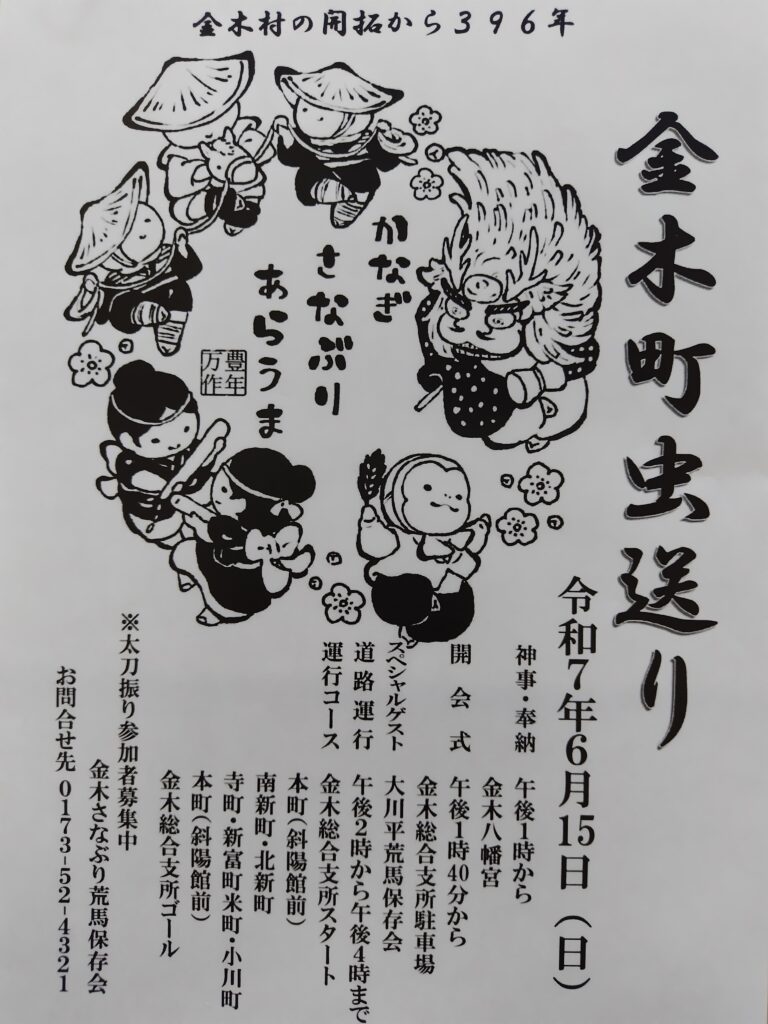 金木村の開拓から396年
金木町虫送り
令和7年6月15日(日)
かなぎ
さなぶり
あらうま
豊年
万作
神事・奉納 午後1時から
金木八幡宮
開会式 午後1時40分から
金木総合支所駐車場
スペシャルゲスト 大川平荒馬保存会
道路運行 午後2時から午後4時まで
運行コース 金木総合支所スタート
本町(斜陽館前)
南新町・北新町
寺町・新富町米町・小川町
本町(斜陽館前)
金木総合支所ゴール
※太刀振り参加者募集中
金木さなぶり荒馬保存会
お問合せ先 0173-52-4321